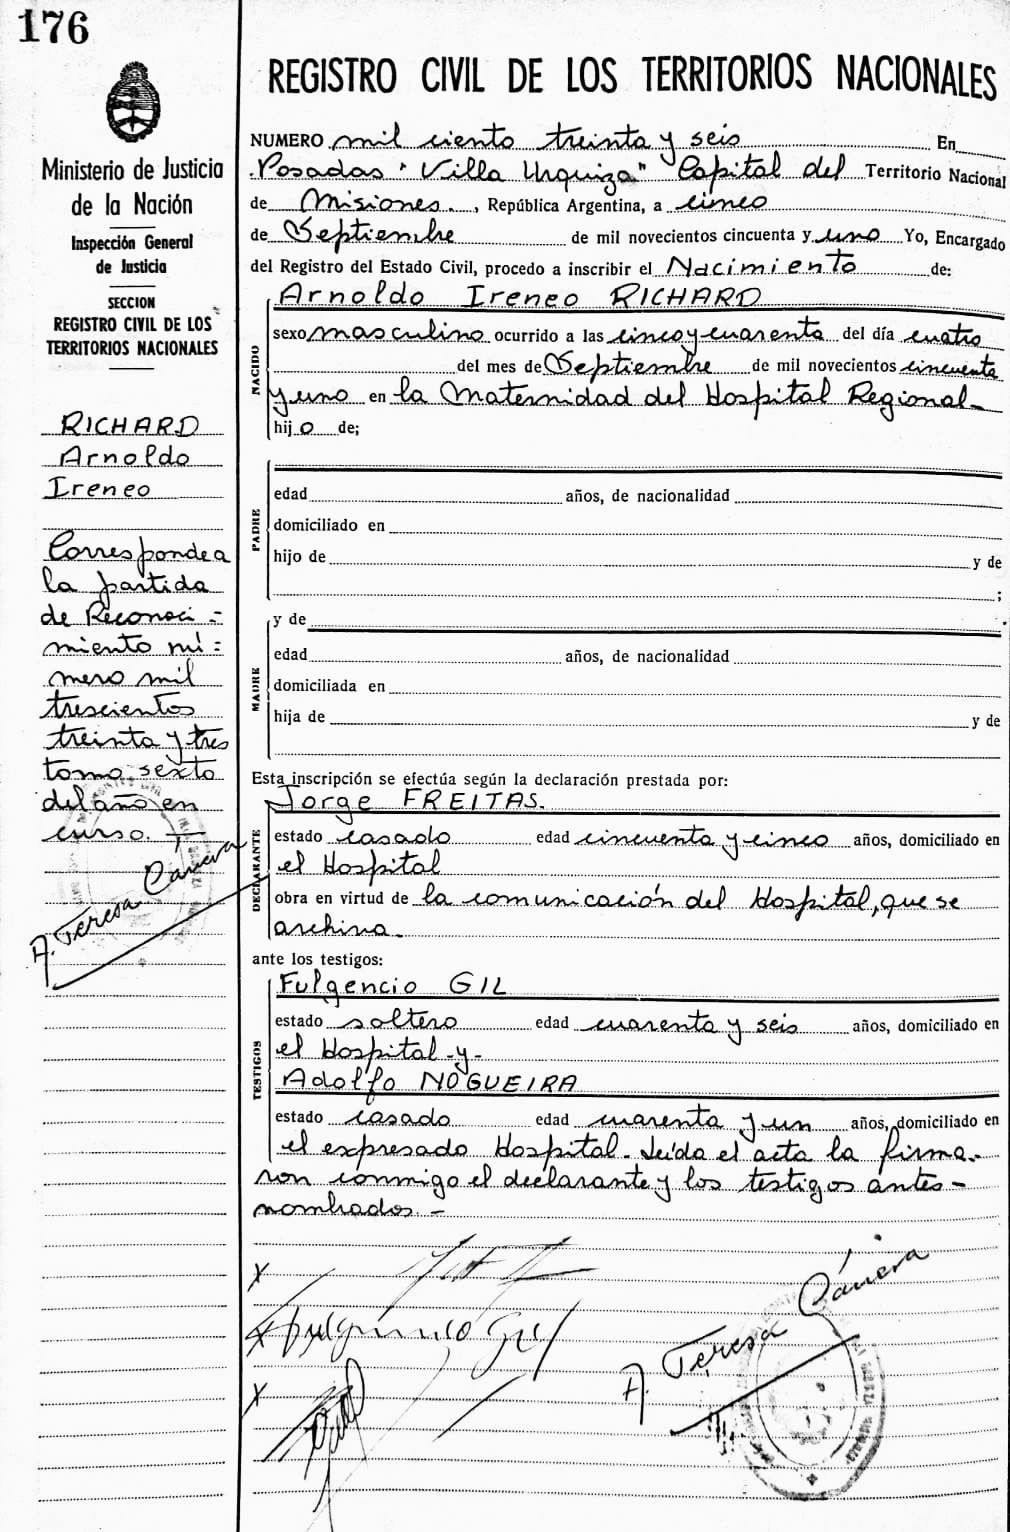 176
Ministerio de Justicia
de la Nación
Inspección General
de Justicia
SECCION
REGISTRO CIVIL DE LOS
TERRITORIOS NACIONALES
RICHARD
Arnoldo
Ireneo
Corresponde a
la partida
de Reconoci-
miento nú=
mero mil
trescientos
treinta y tres
tomo sexto
del año en
curso.
A. Teresa Cánera
REGISTRO CIVIL DE LOS TERRITORIOS NACIONALES
NUMERO mil ciento treinta y seis En
Posadas "Villa Urquiza" Capital del Territorio Nacional
de Misiones, República Argentina, a cinco
de Septiembre de mil novecientos cincuenta y uno Yo, Encargado
del Registro del Estado Civil, procedo a inscribir el Nacimiento de:
NACIDO
Arnoldo Ireneo RICHARD
sexo masculino ocurrido a las cinco y cuarenta del día cuatro
del mes de Septiembre de mil novecientos cincuenta
y uno en la Maternidad del Hospital Regional-
hijo de;
PADRE
edad años, de nacionalidad
domiciliado en
hijo de y de
;
MADRE
y de
edad años, de nacionalidad
domiciliada en
hija de y de
Esta inscripción se efectúa según la declaración prestada por:
DECLARANTE
Jorge FREITAS.
estado casado edad cincuenta y cinco años, domiciliado en
el Hospital
obra en virtud de la comunicación del Hospital, que se
archiva.
ante los testigos:
TESTIGOS
Fulgencio GIL
estado soltero edad cuarenta y seis años, domiciliado en
el Hospital -y-
Adolfo NOGUEIRA
estado casado edad cuarenta y un años, domiciliado en
el expresado Hospital. Leída el acta la firma-
ron conmigo el declarante y los testigos antes-
nombrados.-
X
X Fulgencio Gil
X
A. Teresa Cánera